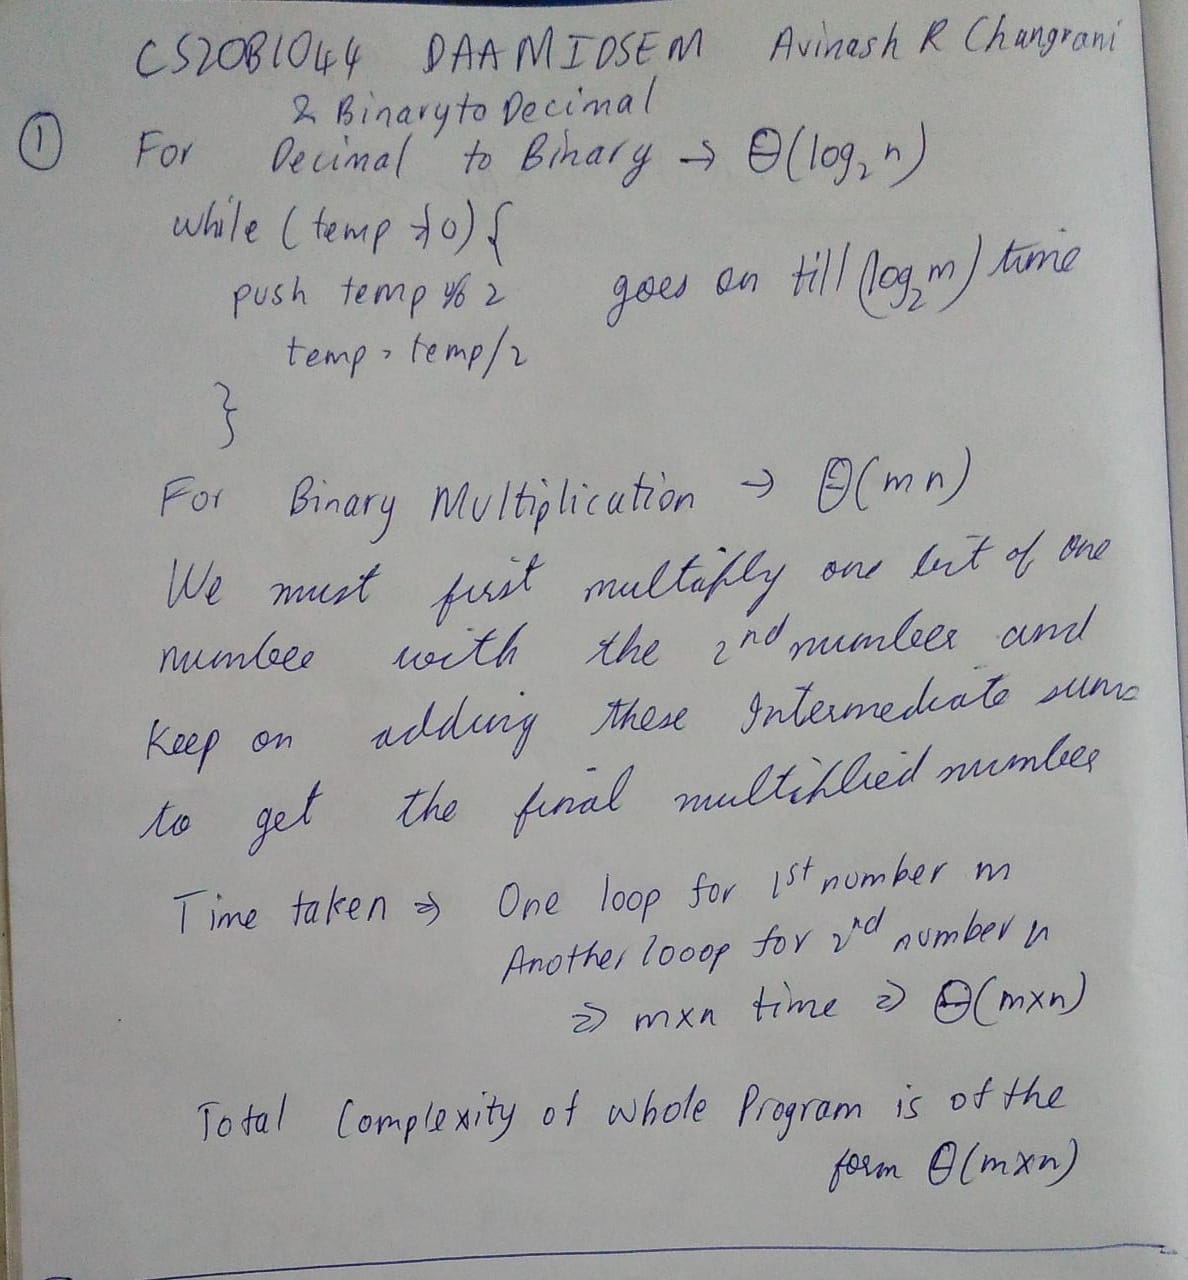 CS20B1044 DAA MIDSEM Avinash R Changrani
& Binary to Decimal
① For Decimal to Binary → Θ(log₂ n)
while (temp ≠ 0) {
push temp % 2 goes on till (log₂ m) time
temp = temp/2
}
For Binary Multiplication → Θ(mn)
We must first multiply one bit of one
number with the 2nd number and
keep on adding these Intermediate sums
to get the final multiplied number
Time taken ⇒ One loop for 1st number m
Another looop for 2nd number n
⇒ m×n time ⇒ Θ(m×n)
Total Complexity of whole Program is of the
form Θ(m×n)